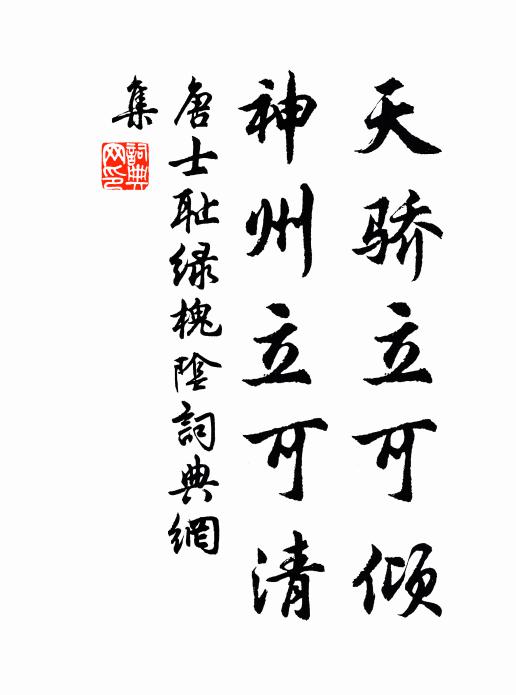 天骄立可倾
神州立可清
唐士耻绿槐阴詞典網
集
詞典网印